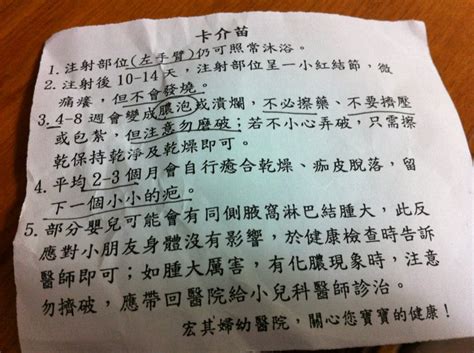 卡介苗
1. 注射部位(左手臂)仍可照常沐浴。
2. 注射後10-14天，注射部位呈一小紅結節，微
痛癢，但不會發燒。
3. 4-8週會變成膿泡或潰爛，不必擦藥、不要擠壓
或包紮，但注意勿磨破；若不小心弄破，只需擦
乾保持乾淨及乾燥即可。
4. 平均2-3個月會自行癒合乾燥、痂皮脫落，留
下一個小小的疤。
5. 部分嬰兒可能會有同側腋窩淋巴結腫大，此反
應對小朋友身體沒有影響，於健康檢查時告訴
醫師即可；如腫大厲害，有化膿現象時，注意
勿擠破，應帶回醫院給小兒科醫師診治。
宏其婦幼醫院，關心您寶寶的健康！